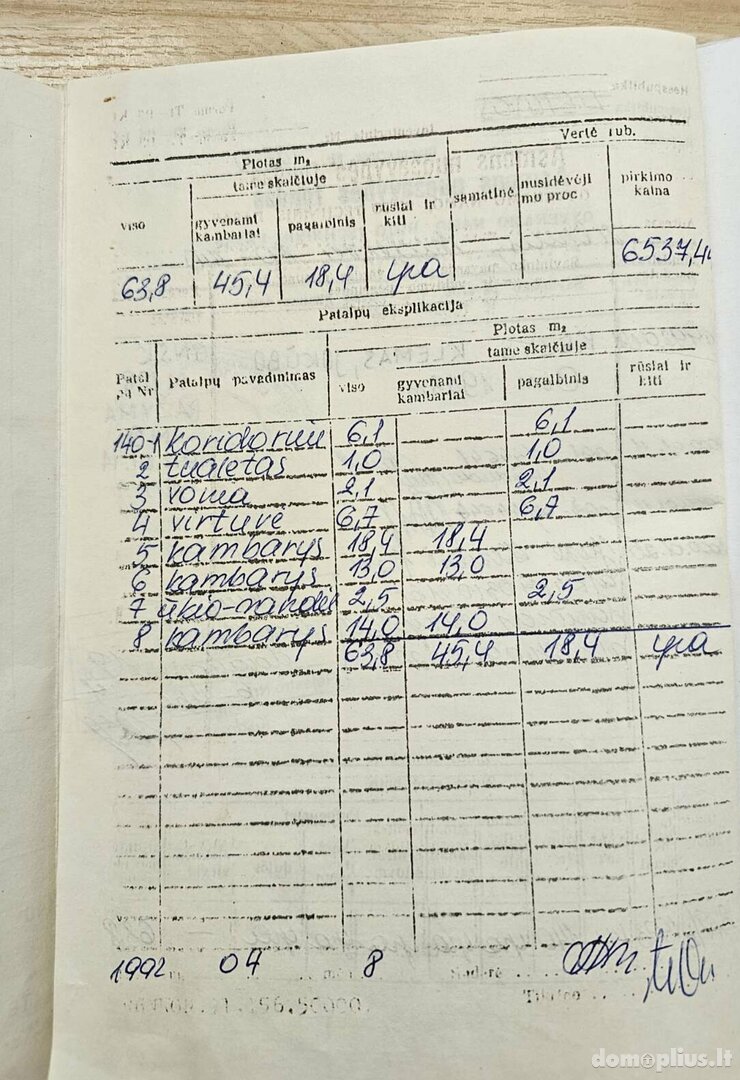 Vertė rub.
Plotas m₂
tame skaičiuje
viso
gyvenami kambariai
pagalbinis
rūsiai ir kiti
samatinė
nusidėvėji mo proc
pirkimo kaina
63,8 45,4 18,4 yra 6537,4
Patalpų eksplikacija
Plotas m₂
tame skaičiuje
Patal pų Nr
Patalpų pavadinimas
viso
gyvenami kambariai
pagalbinis
rūsiai ir kiti
140-1 koridorius 6,1 6,1
2 tualetas 1,0 1,0
3 vonia 2,1 2,1
4 virtuvė 6,7 6,7
5 kambarys 18,4 18,4
6 kambarys 13,0 13,0
7 2,5 2,5
8 kambarys 14,0 14,0
63,8 45,4 18,4 yra
1992 04 8
domoplius.lt